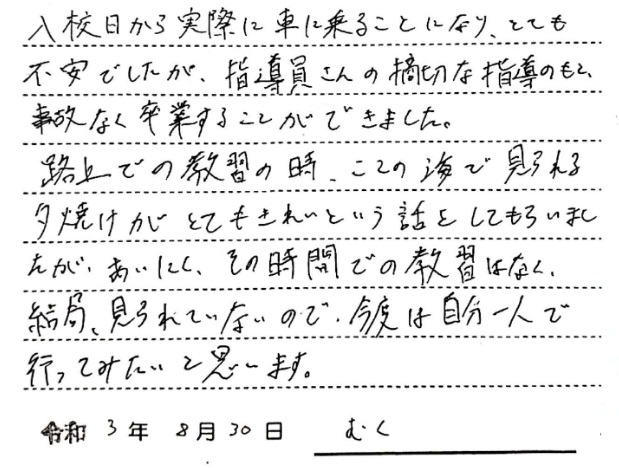 入校日から実際に車に乗ることになり、とても
不安でしたが、指導員さんの適切な指導のもと、
事故なく卒業することができました。
路上での教習の時、ここの海で見られる
夕焼けがとてもきれいという話をしてもらいまし
たが、あいにく、その時間での教習はなく、
結局、見られていないので、今度は自分一人で
行ってみたいと思います。
令和 3年 8月30日 むく